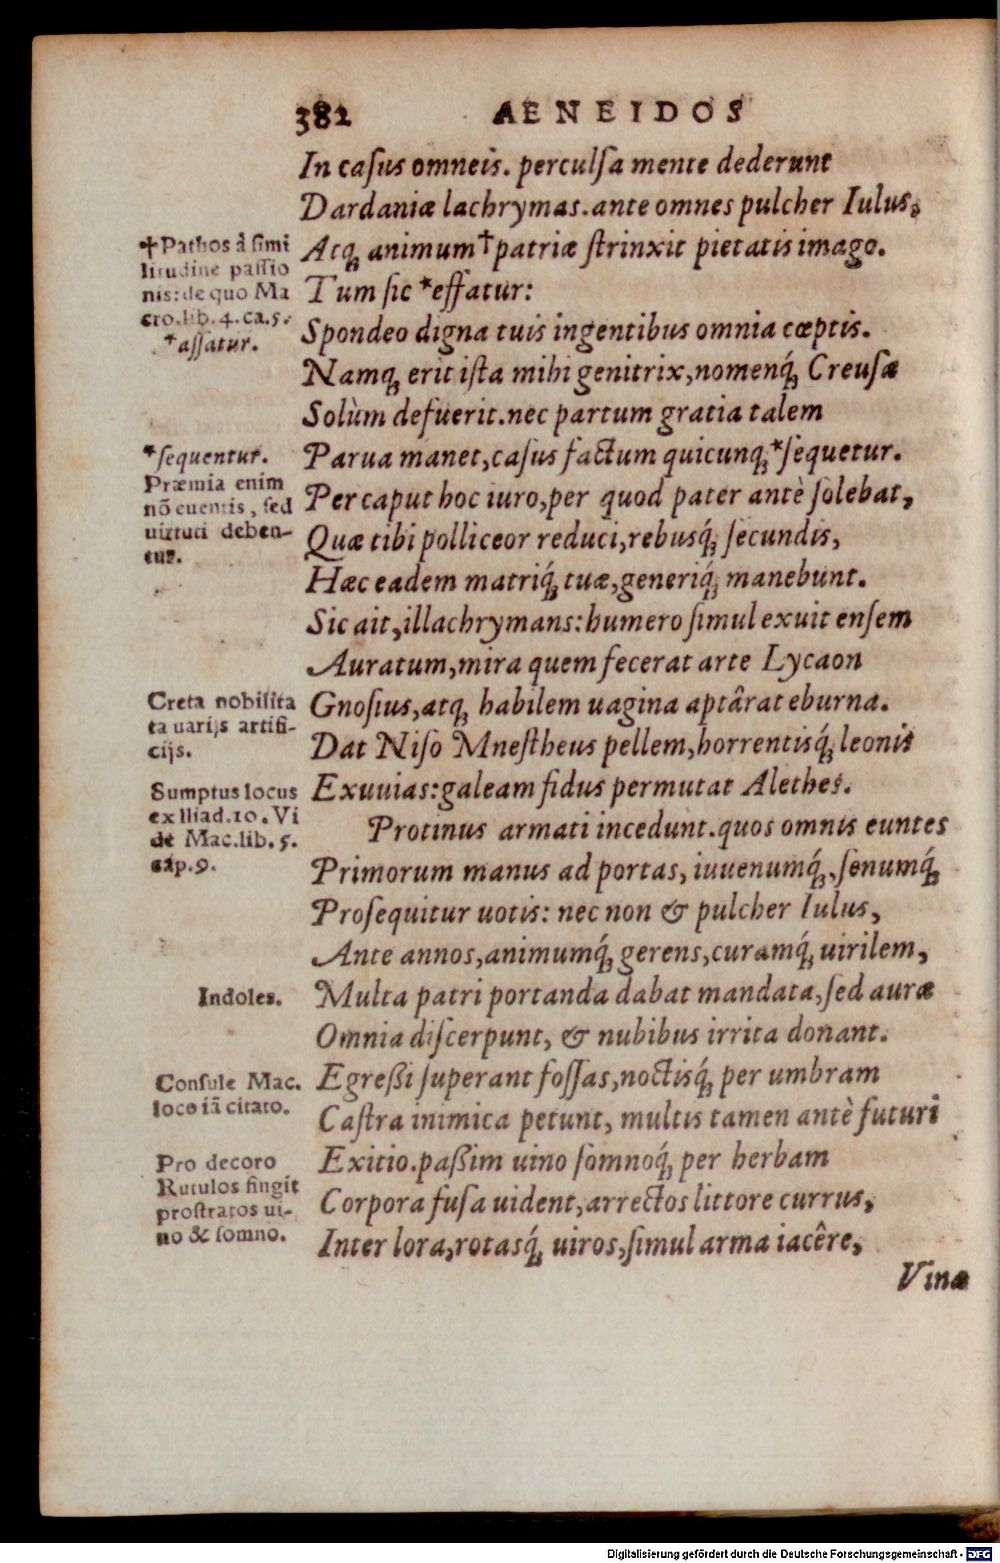 382 AENEIDOS
In caſus omneis. perculſa mente dederunt
Dardaniæ lachrymas. ante omnes pulcher Iulus,
Atq; animum †patriæ ſtrinxit pietatis imago.
Tum ſic *effatur:
Spondeo digna tuis ingentibus omnia cœptis.
Namq; erit iſta mihi genitrix, nomenq́; Creuſæ
Solùm defuerit. nec partum gratia talem
Parua manet, caſus factum quicunq; *ſequetur.
Per caput hoc iuro, per quod pater antè ſolebat,
Quæ tibi polliceor reduci, rebusq́; ſecundis,
Hæc eadem matriq́; tuæ, generiq́; manebunt.
Sic ait, illachrymans: humero ſimul exuit enſem
Auratum, mira quem fecerat arte Lycaon
Gnoſius, atq; habilem uagina aptârat eburna.
Dat Niſo Mneſtheus pellem, horrentisq́; leonis
Exuuias: galeam fidus permutat Alethes.
Protinus armati incedunt. quos omnis euntes
Primorum manus ad portas, iuuenumq́;, ſenumq́;
Proſequitur uotis: nec non & pulcher Iulus,
Ante annos, animumq́; gerens, curamq́; uirilem,
Multa patri portanda dabat mandata, ſed auræ
Omnia diſcerpunt, & nubibus irrita donant.
Egreßi ſuperant foſſas, noctisq́; per umbram
Caſtra inimica petunt, multis tamen antè futuri
Exitio. paßim uino ſomnoq́; per herbam
Corpora fuſa uident, arrectos littore currus,
Inter lora, rotasq́; uiros, ſimul arma iacêre,
Vina
†Pathos à ſimi
litudine paſſio
nis: de quo Ma
cro. lib. 4. ca. 5.
*aſſatur.
*ſequentur.
Præmia enim
nō euentis, ſed
uirtuti deben-
tur.
Creta nobilita
ta uarijs artifi-
cijs.
Sumptus locus
ex Iliad. 10. Vi
de Mac. lib. 5.
cap. 9.
Indoles.
Conſule Mac.
loco iā citato.
Pro decoro
Rutulos fingit
proſtratos ui-
no & ſomno.
Digitalisierung gefördert durch die Deutsche Forschungsgemeinschaft - DFG